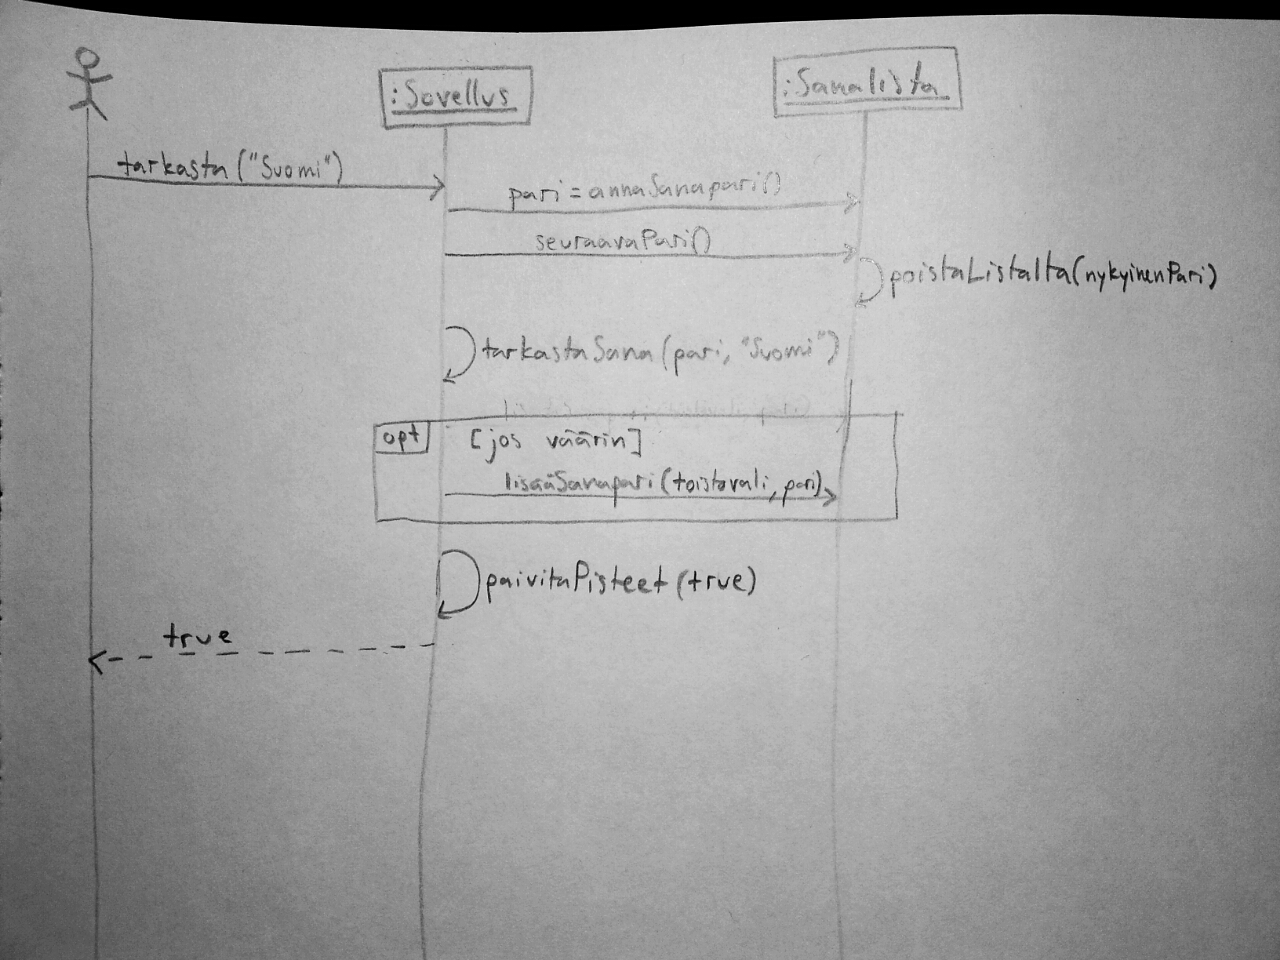 :Sovellus
:Sanalista
tarkasta("Suomi")
pari = annaSanapari()
seuraavaPari()
poistaListalta(nykyinenPari)
tarkastaSana(pari, "Suomi")
opt
[jos väärin]
lisääSanapari(toistovali, pari)
paivitaPisteet(true)
true